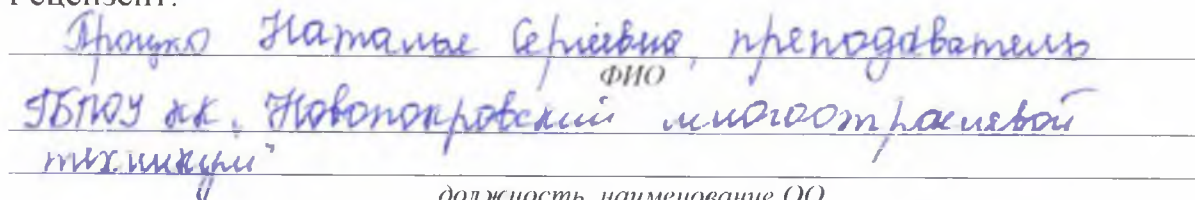 Рецензент:
Процко Наталья Сергеевна, преподаватель
ФИО
ГБПОУ КК "Новопокровский многоотраслевой
техникум"
должность, наименование ОО